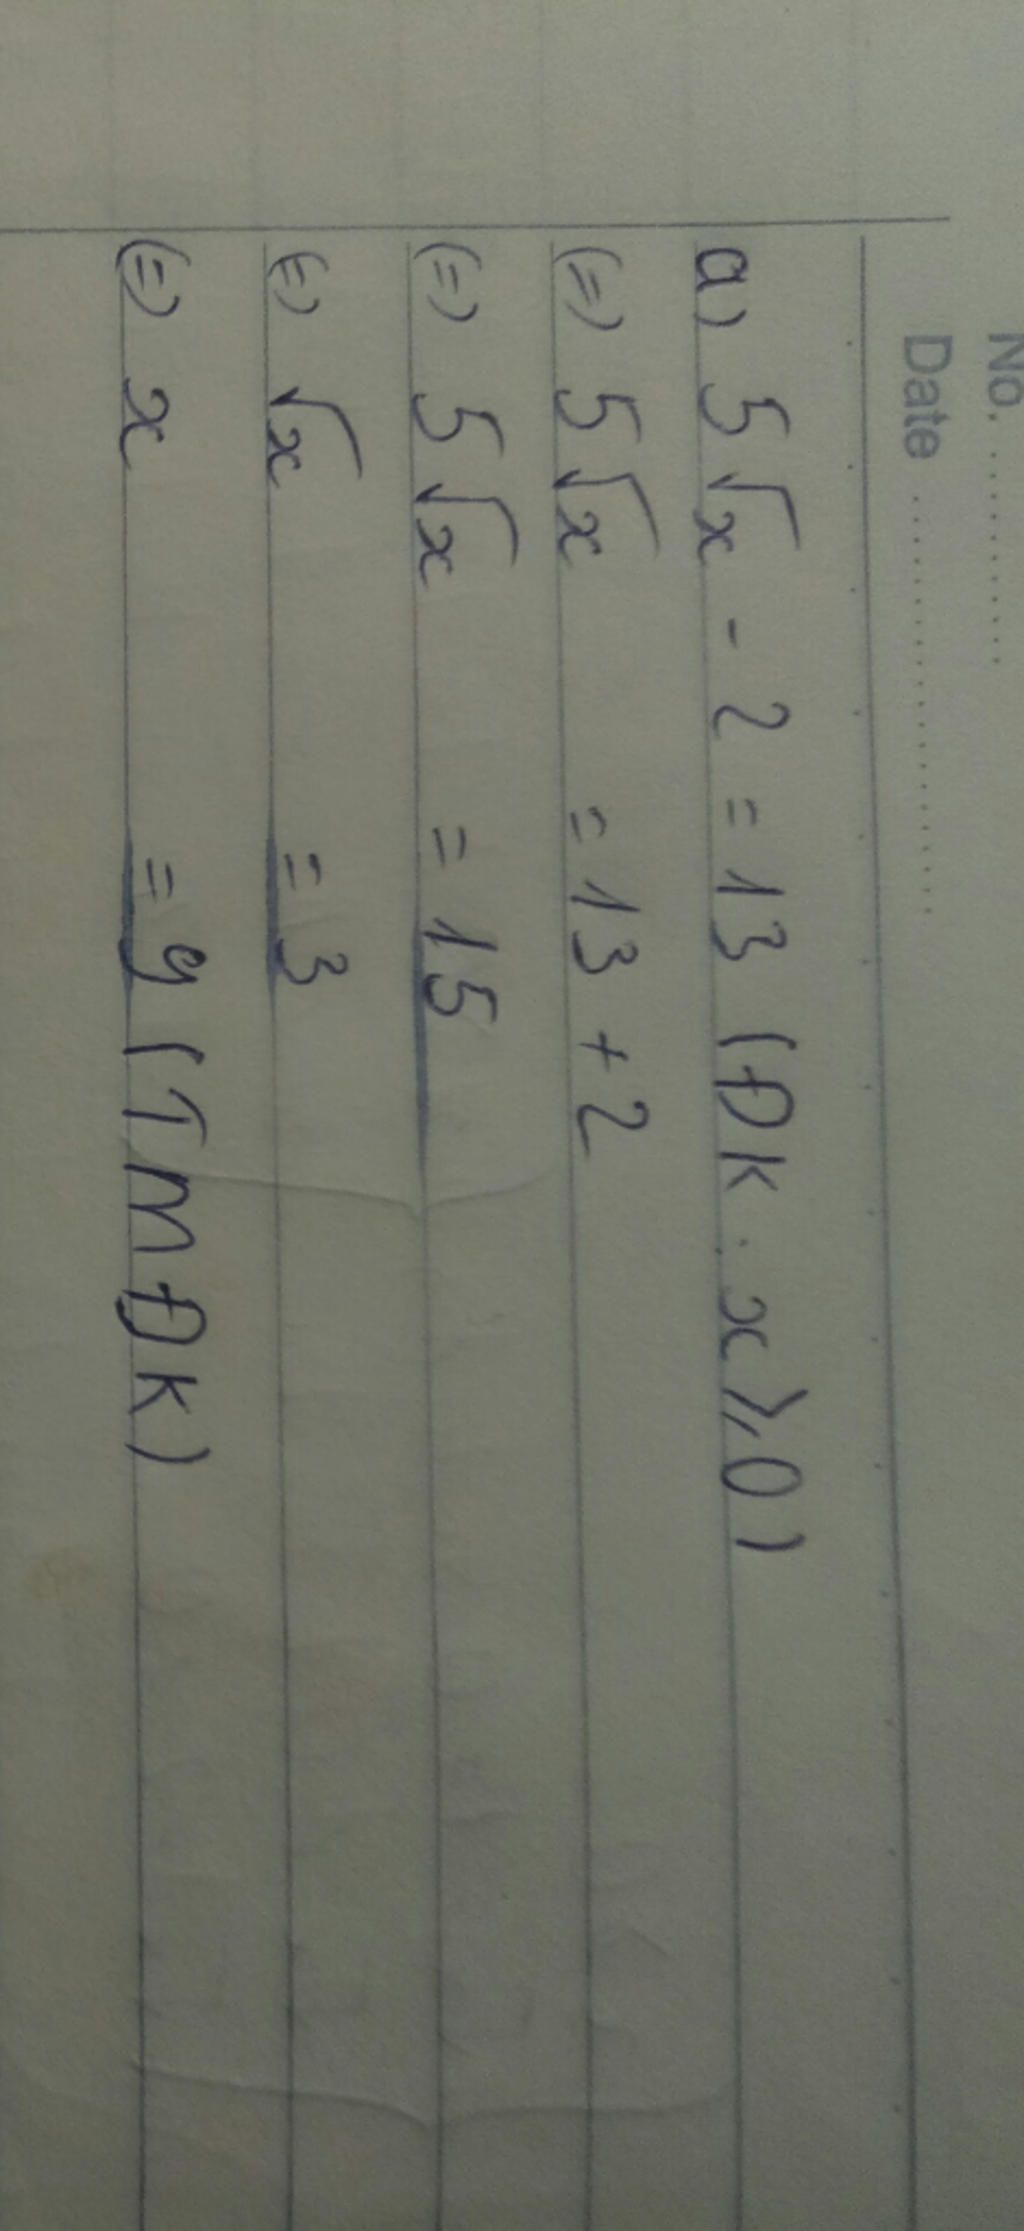 No. ............
Date ........................
a) 5√x - 2 = 13 (ĐK : x ≥ 0)
(=) 5√x = 13 + 2
(=) 5√x = 15
(=) √x = 3
(=) x = 9 (TMĐK)